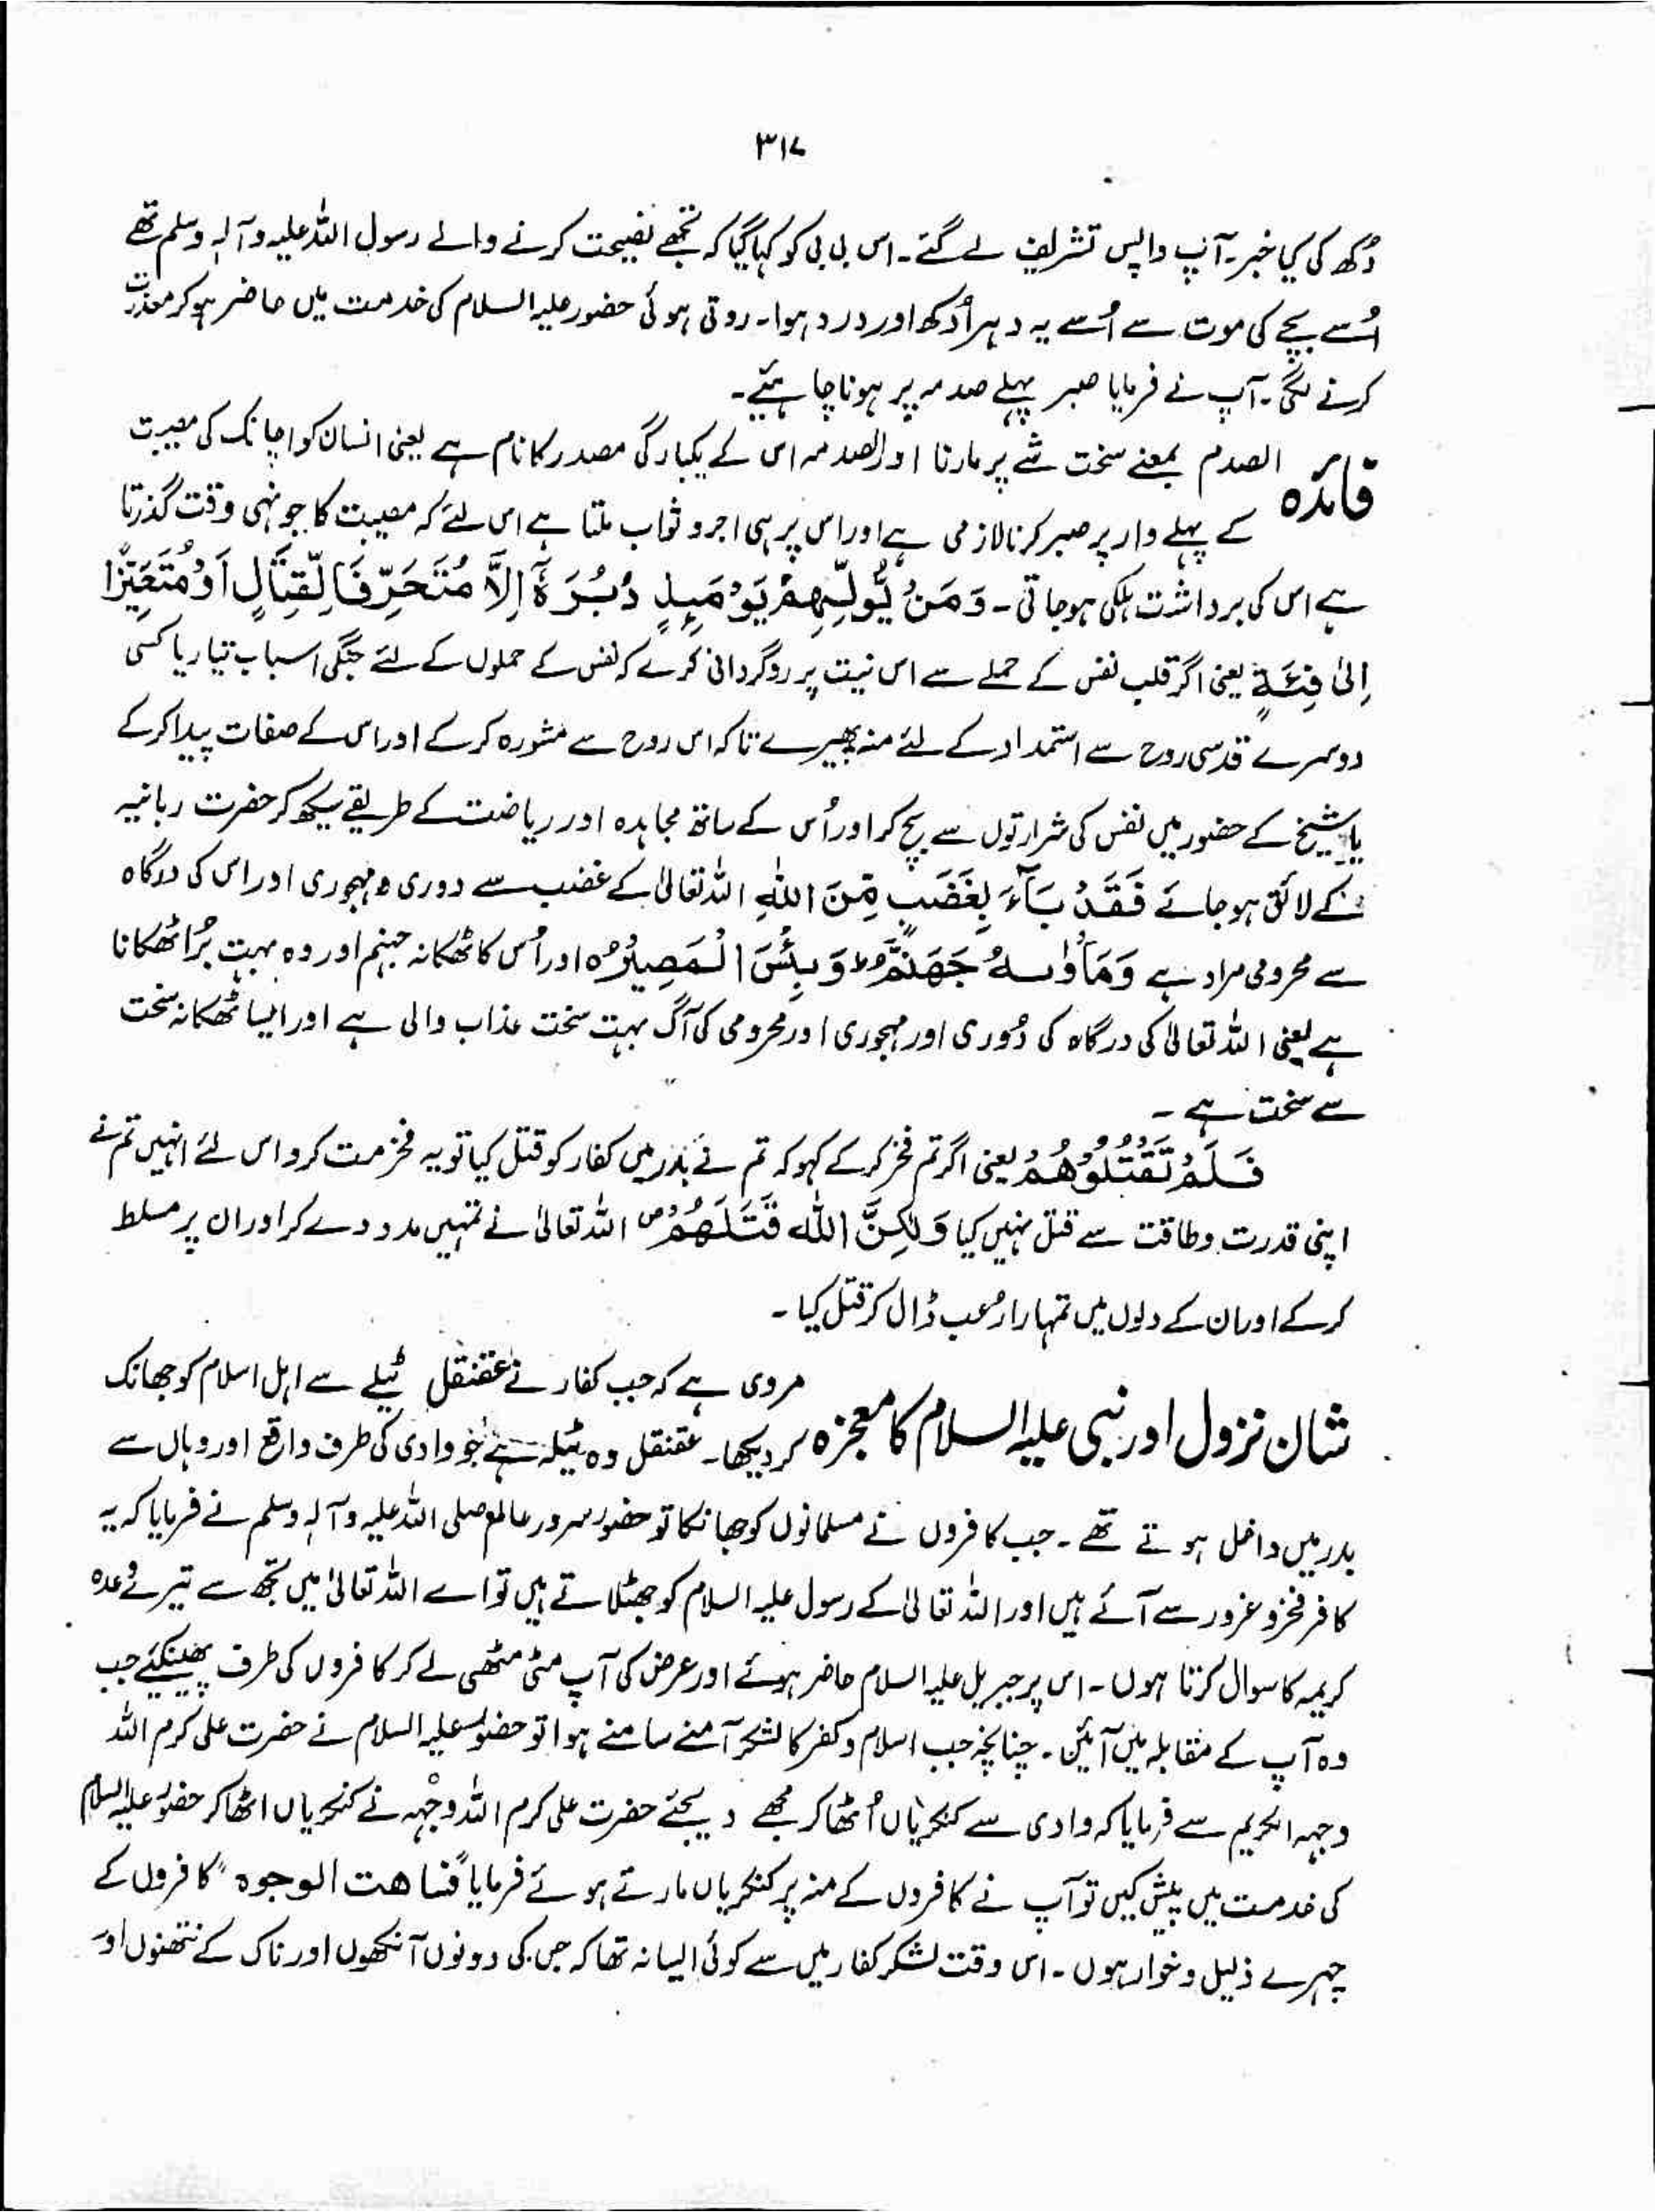 ۳۱۷
دُکھ کی کیا خبر۔ آپ واپس تشریف لے گئے۔ اس بی بی کو کہا گیا کہ تجھے نصیحت کرنے والے رسول اللہ علیہ وآلہٖ وسلم تھے
اُسے بچے کی موت سے اُسے یہ دہرا دُکھ اور درد ہوا۔ روتی ہوئی حضور علیہ السلام کی خدمت میں حاضر ہو کر معذرت
کرنے لگی۔ آپ نے فرمایا صبر پہلے صدمہ پر ہونا چاہئیے۔
فائدہ الصدم بمعنے سخت شے پر مارنا اور الصدمہ اس کے یکبارگی مصدر کا نام ہے یعنی انسان کو اچانک کی مصیبت
کے پہلے وار پر صبر کرنا لازمی ہے اور اس پر ہی اجر و ثواب ملتا ہے اس لئے کہ مصیبت کا جونہی وقت گذرتا
ہے اس کی برداشت ہلکی ہو جاتی۔ وَمَنْ یُّوَلِّہِمْ یَوْمَئِذٍ دُبُرَہٗٓ اِلَّا مُتَحَرِّفًا لِّقِتَالٍ اَوْ مُتَحَیِّزًا
اِلٰی فِئَۃٍ یعنی اگر قلب نفس کے حملے سے اس نیت پر روگردانی کرے کہ نفس کے حملوں کے لئے جنگی اسباب تیار یا کسی
دوسرے قدسی روح سے استمداد کے لئے منہ پھیرے تاکہ اس روح سے مشورہ کرکے اور اس کے صفات پیدا کرکے
یا شیخ کے حضور میں نفس کی شرارتوں سے بچ کر اور اُس کے ساتھ مجاہدہ اور ریاضت کے طریقے سیکھ کر حضرت ربانیہ
کے لائق ہو جائے فَقَدْ بَآءَ بِغَضَبٍ مِّنَ اللّٰہِ اللہ تعالیٰ کے غضب سے دوری و مہجوری اور اس کی درگاہ
سے محرومی مراد ہے وَمَاْوٰىہُ جَھَنَّمُ ؕ وَبِئْسَ الْمَصِیْرُ ہ اور اُس کا ٹھکانہ جہنم اور وہ بہت بُرا ٹھکانا
ہے یعنی اللہ تعالیٰ کی درگاہ کی دُوری اور مہجوری اور محرومی کی آگ بہت سخت عذاب والی ہے اور ایسا ٹھکانہ سخت
سے سخت ہے۔
فَلَمْ تَقْتُلُوْھُمْ یعنی اگر تم فخر کرکے کہو کہ تم نے بدر میں کفار کو قتل کیا تو یہ فخر مت کرو اس لئے انہیں تم نے
اپنی قدرت وطاقت سے قتل نہیں کیا وَلٰکِنَّ اللّٰہَ قَتَلَھُمْ ص اللہ تعالیٰ نے تمہیں مدد دے کر اور ان پر مسلط
کرکے اور ان کے دلوں میں تمہارا رُعب ڈال کر قتل کیا۔
شان نزول اور نبی علیہ السلام کا معجزہ مروی ہے کہ جب کفار نے عقنقل ٹیلے سے اہل اسلام کو جھانک
کر دیکھا۔ عقنقل وہ ٹیلہ ہے جو وادی کی طرف واقع اور وہاں سے
بدر میں داخل ہوتے تھے۔ جب کافروں نے مسلمانوں کو جھانکا تو حضور سرور عالم صلی اللہ علیہ وآلہٖ وسلم نے فرمایا کہ یہ
کافر فخر و غرور سے آئے ہیں اور اللہ تعالیٰ کے رسول علیہ السلام کو جھٹلاتے ہیں تو اے اللہ تعالیٰ میں تجھ سے تیرے وعدہ
کریمہ کا سوال کرتا ہوں۔ اس پر جبریل علیہ السلام حاضر ہوئے اور عرض کی آپ مٹی مٹھی لے کر کافروں کی طرف پھینکئے جب
وہ آپ کے مقابلہ میں آئیں۔ چنانچہ جب اسلام و کفر کا لشکر آمنے سامنے ہوا تو حضور علیہ السلام نے حضرت علی کرم اللہ
وجہہ الکریم سے فرمایا کہ وادی سے کنکریاں اُٹھا کر مجھے دیجئے حضرت علی کرم اللہ وجہہ نے کنکریاں اٹھا کر حضور علیہ السلام
کی خدمت میں پیش کیں تو آپ نے کافروں کے منہ پر کنکریاں مارتے ہوئے فرمایا "فشاھت الوجوہ" کافروں کے
چہرے ذلیل و خوار ہوں۔ اس وقت لشکر کفار میں سے کوئی ایسا نہ تھا کہ جس کی دونوں آنکھوں اور ناک کے نتھنوں اور